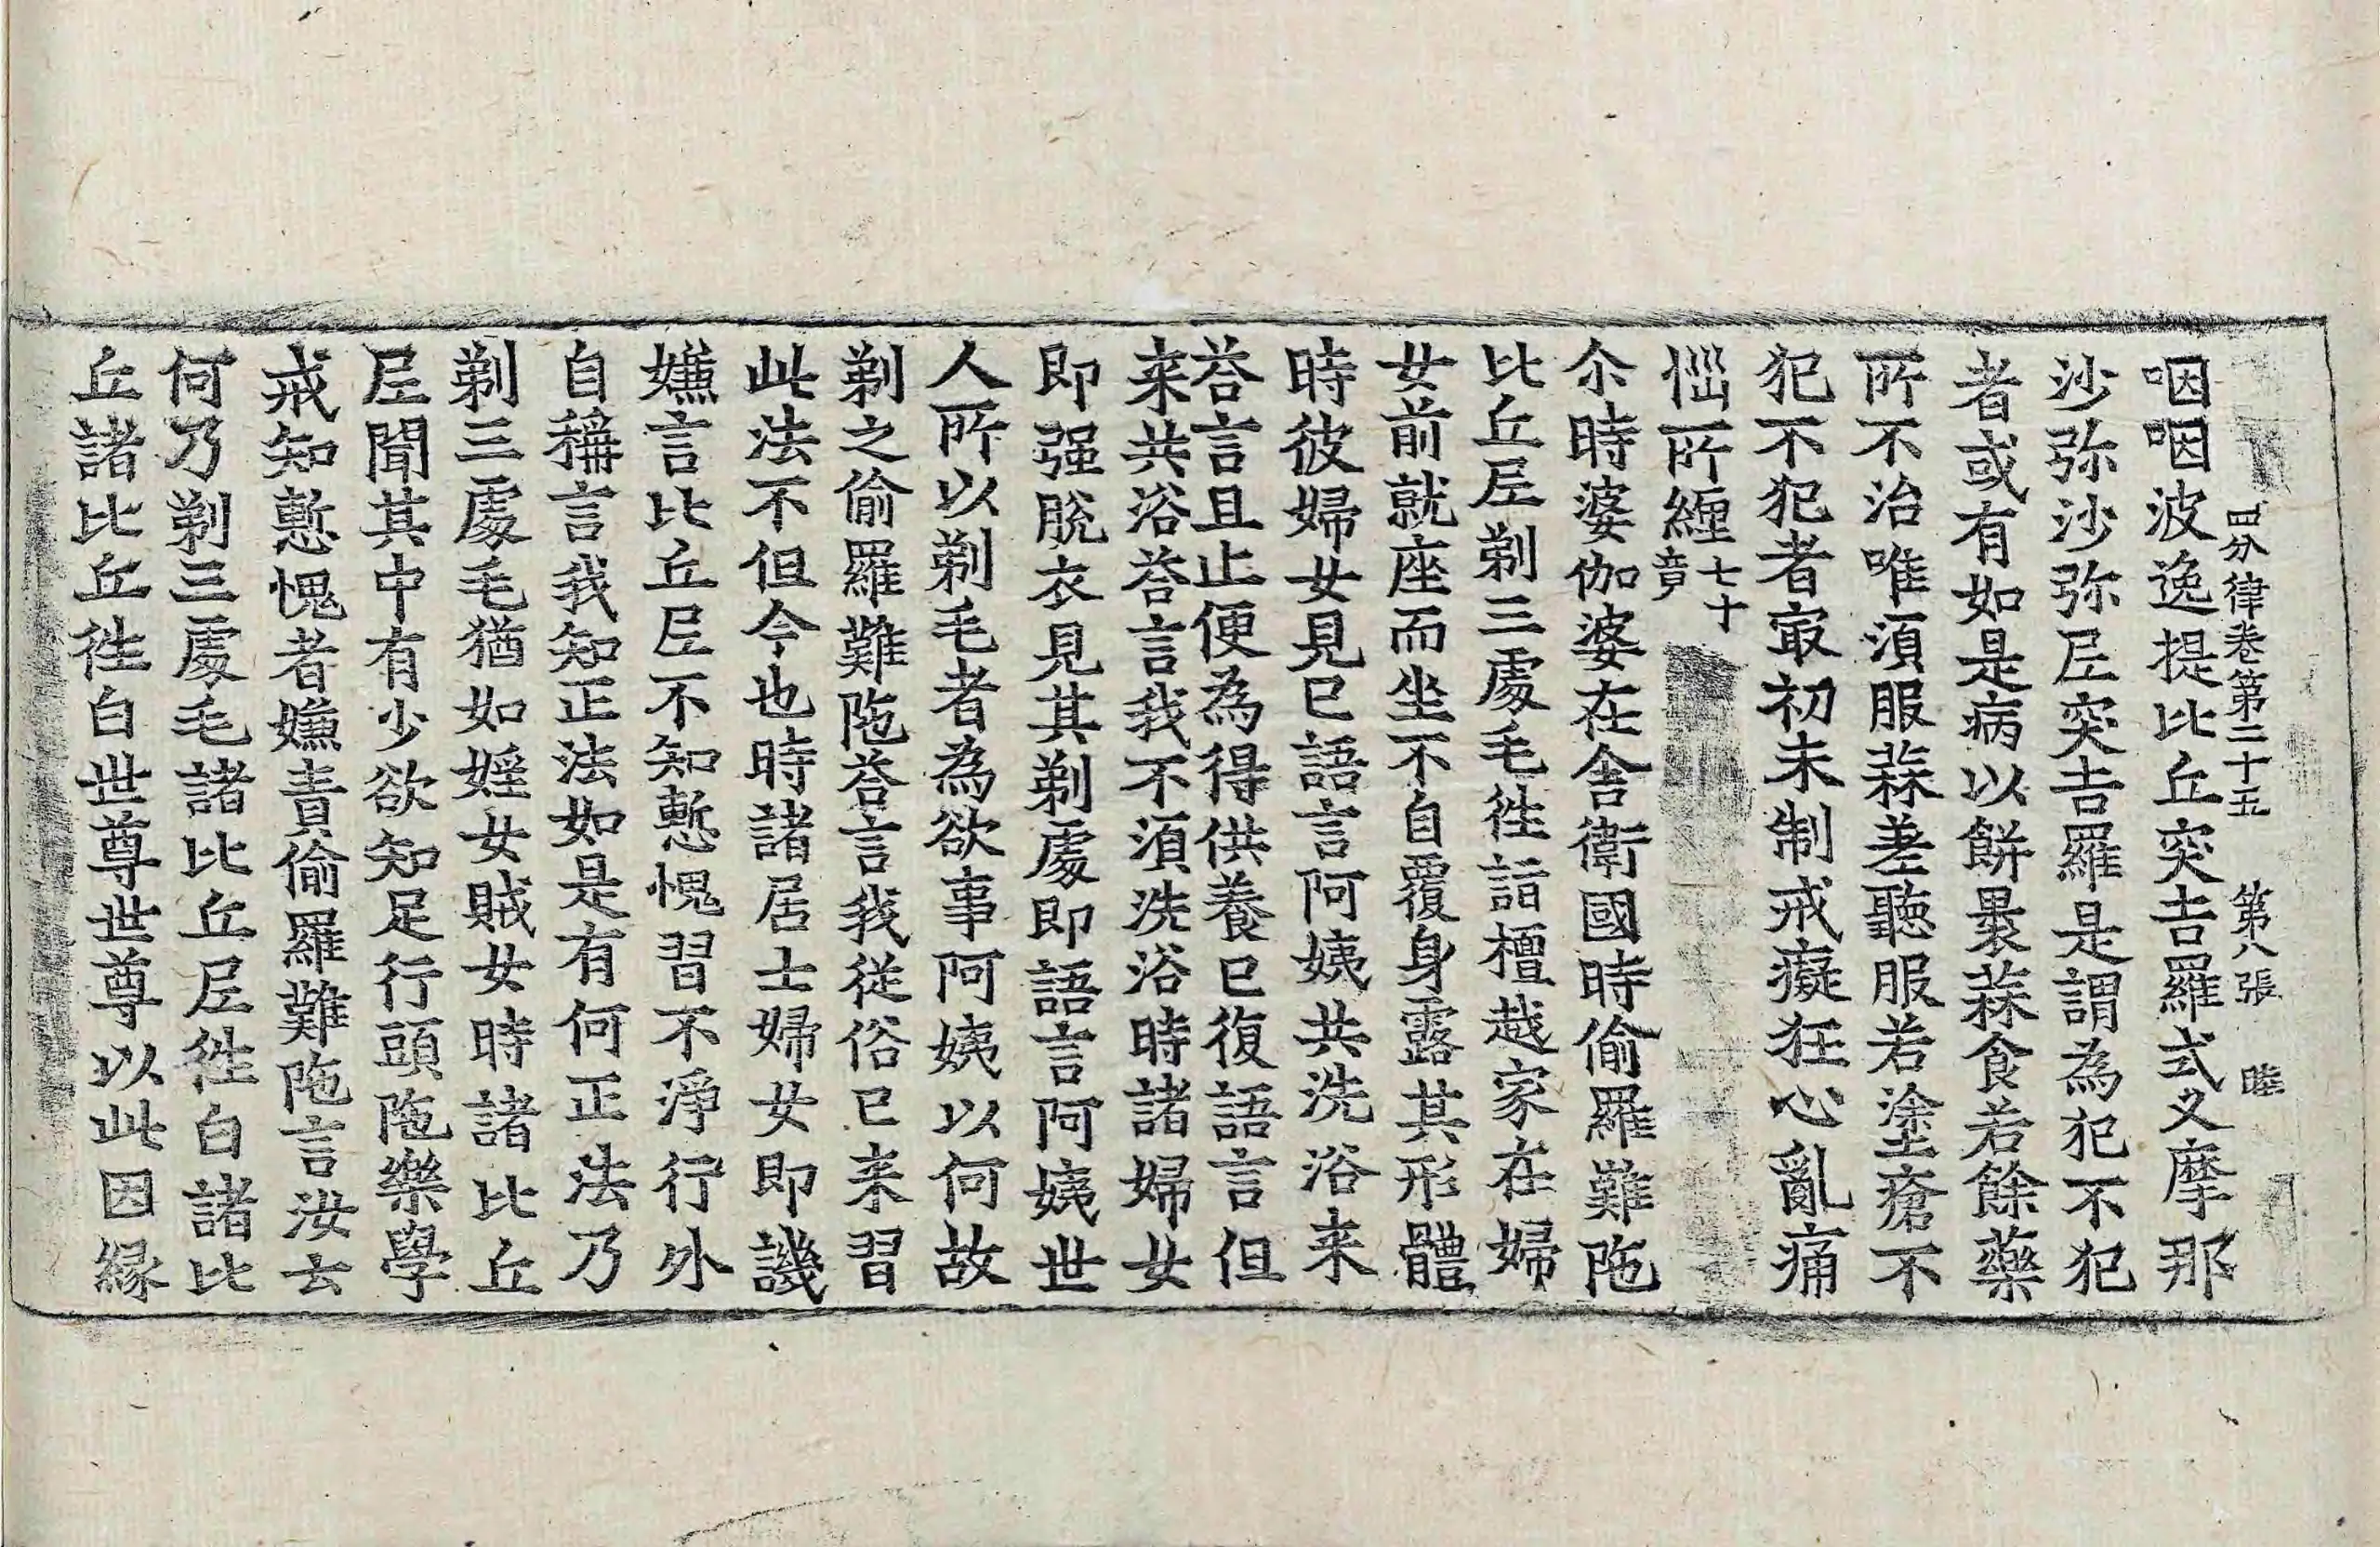 四分律卷第二十五 第八張 睦
咽咽波逸提比丘突吉羅式叉摩那
沙弥沙弥尼突吉羅是謂為犯不犯
者或有如是病以餅裹蒜食若餘藥
所不治唯須服蒜差聽服若塗瘡不
犯不犯者冣初未制戒癡狂心亂痛
惱所纏七十竟
尒時婆伽婆在舍衛國時偷羅難陁
比丘尼剃三處毛徃詣檀越家在婦
女前就座而坐不自覆身露其形體
時彼婦女見已語言阿姨共洗浴来
荅言且止便為得供養已復語言但
来共浴荅言我不須洗浴時諸婦女
即强脫衣見其剃處即語言阿姨世
人所以剃毛者為欲事阿姨以何故
剃之偷羅難陁荅言我從俗已来習
此法不但今也時諸居士婦女即譏
嫌言比丘尼不知慙愧習不淨行外
自稱言我知正法如是有何正法乃
剃三處毛猶如婬女賊女時諸比丘
尼聞其中有少欲知足行頭陁樂學
戒知慙愧者嫌責偷羅難陁言汝云
何乃剃三處毛諸比丘尼徃白諸比
丘諸比丘徃白世尊世尊以此因縁